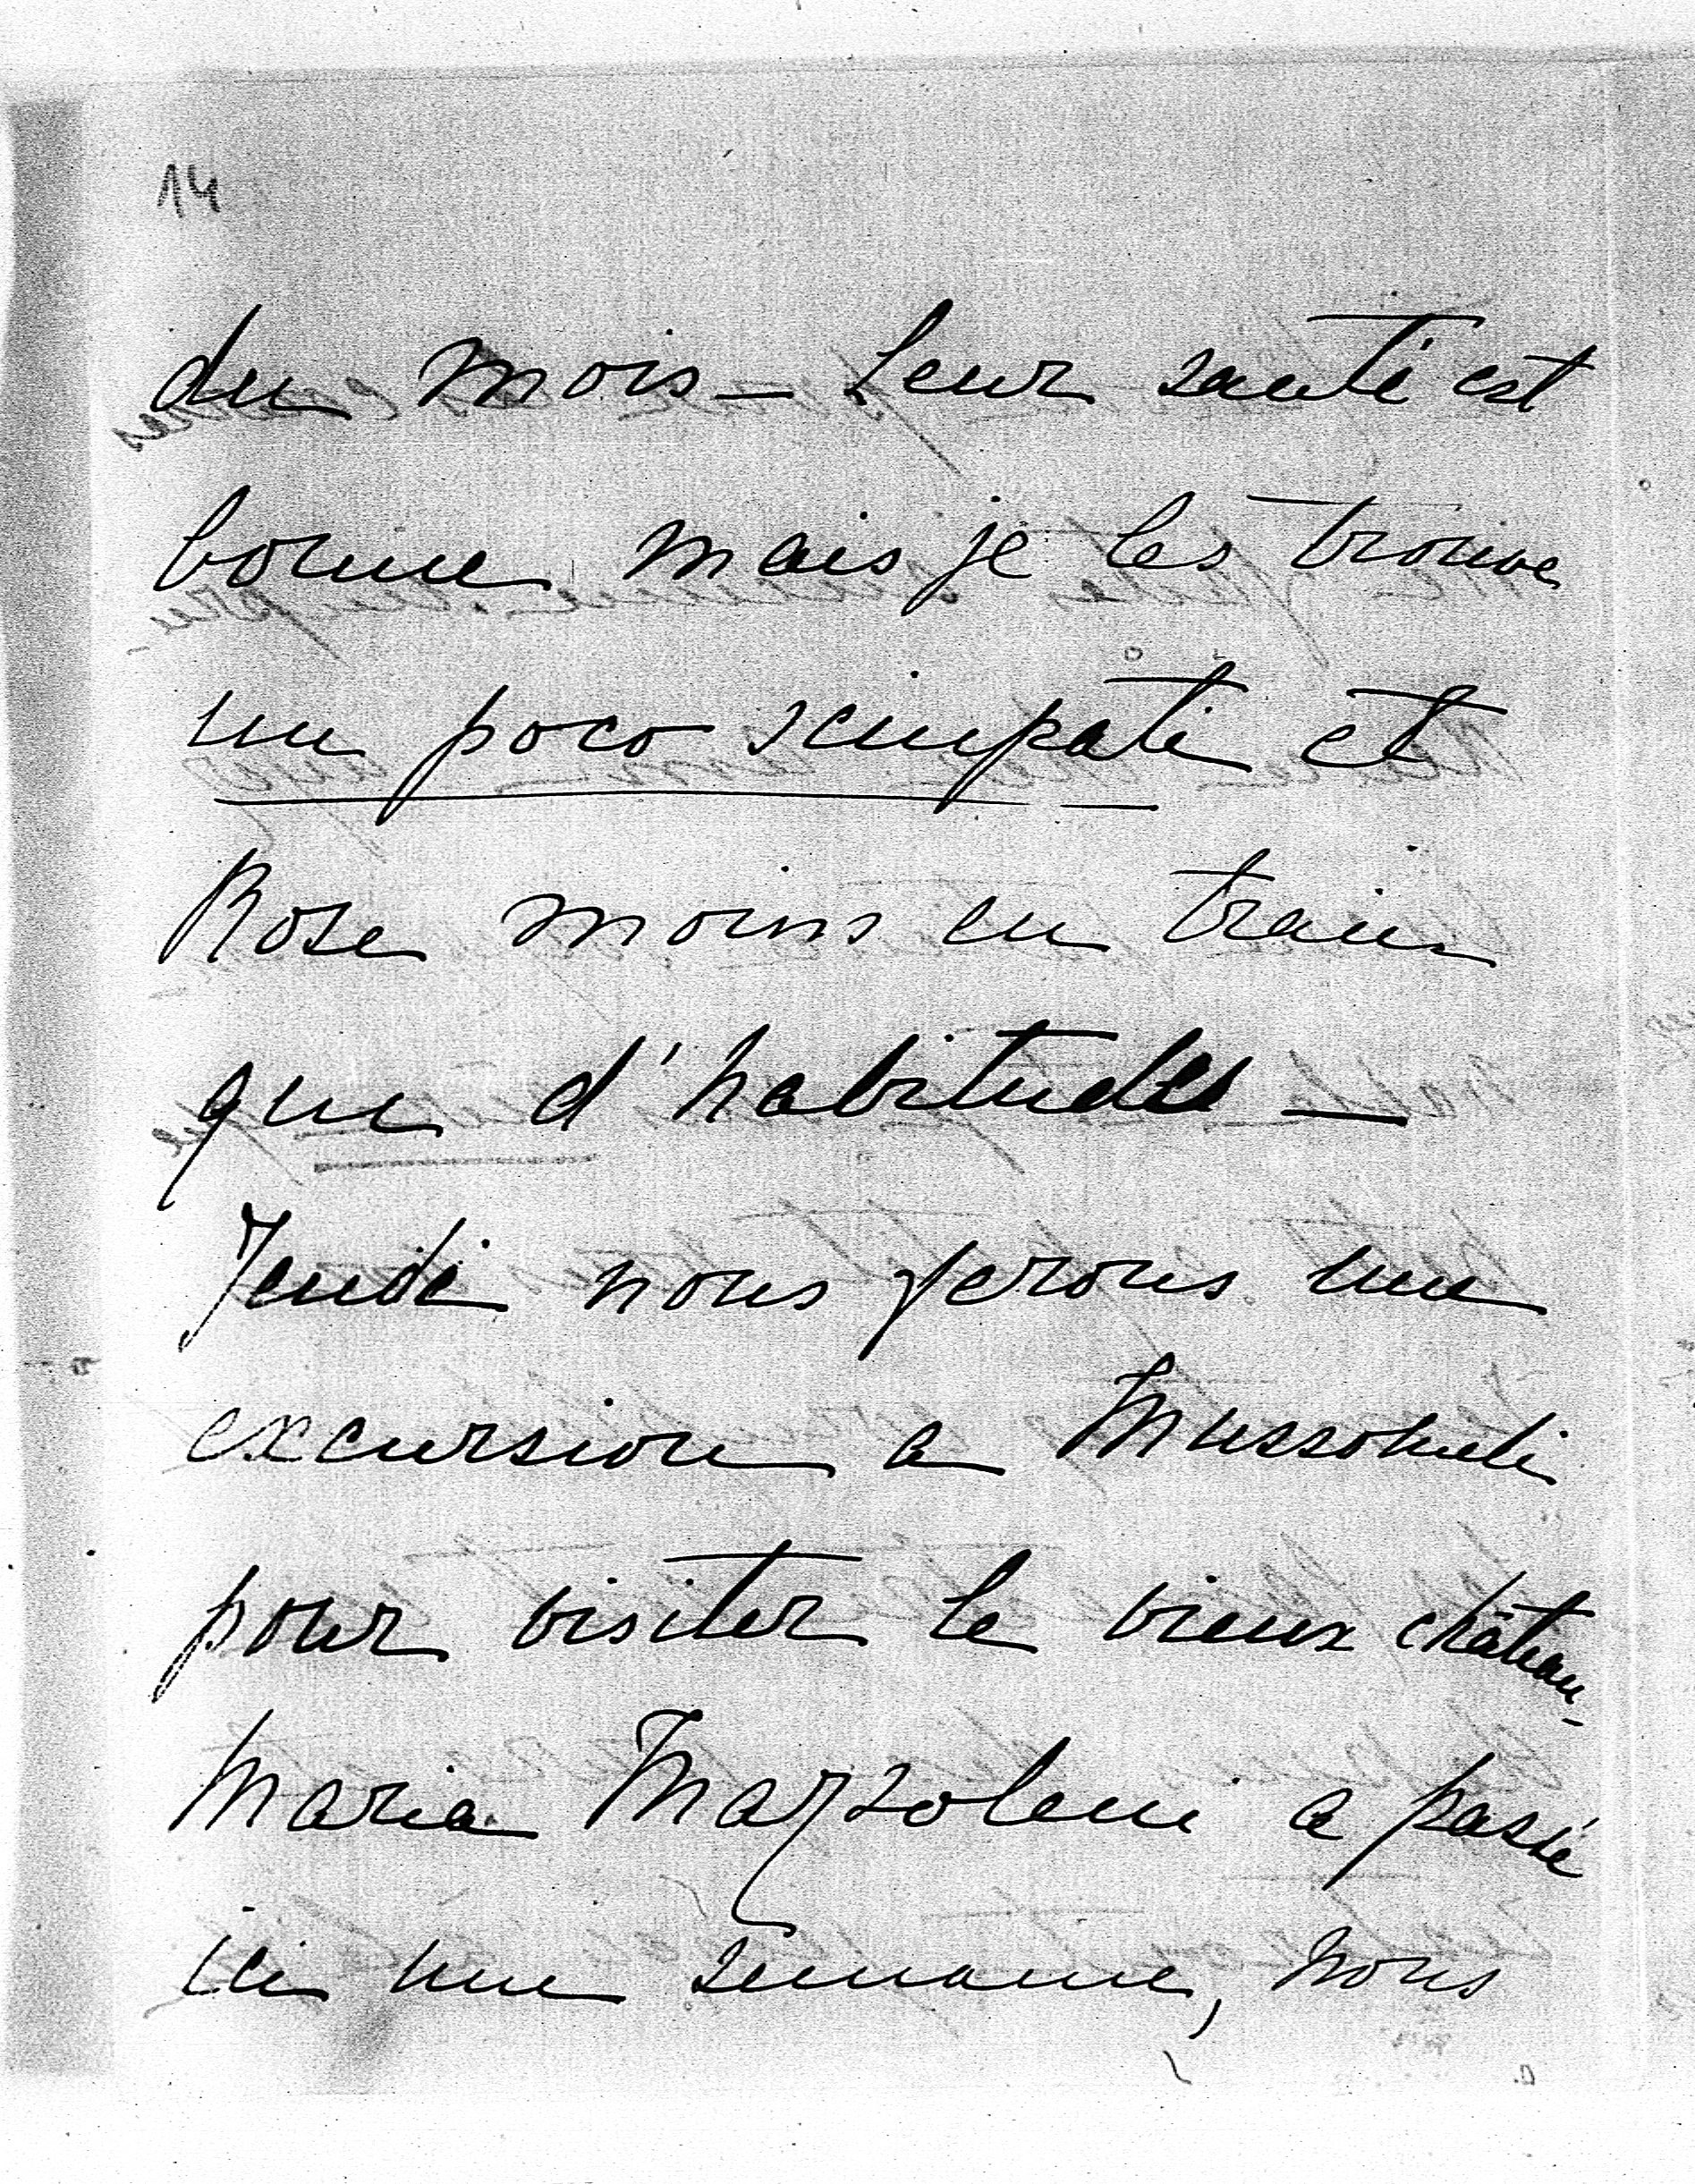 14
du mois — Leur santé est
bonne mais je les trouve
un poco sciupati et
Rose moins en train
que d'habitudes —
Jeudi nous ferons une
excursion a Mussomeli
pour visiter le vieux château -
Maria Mazzoleni a passé
ici une semaine, nous